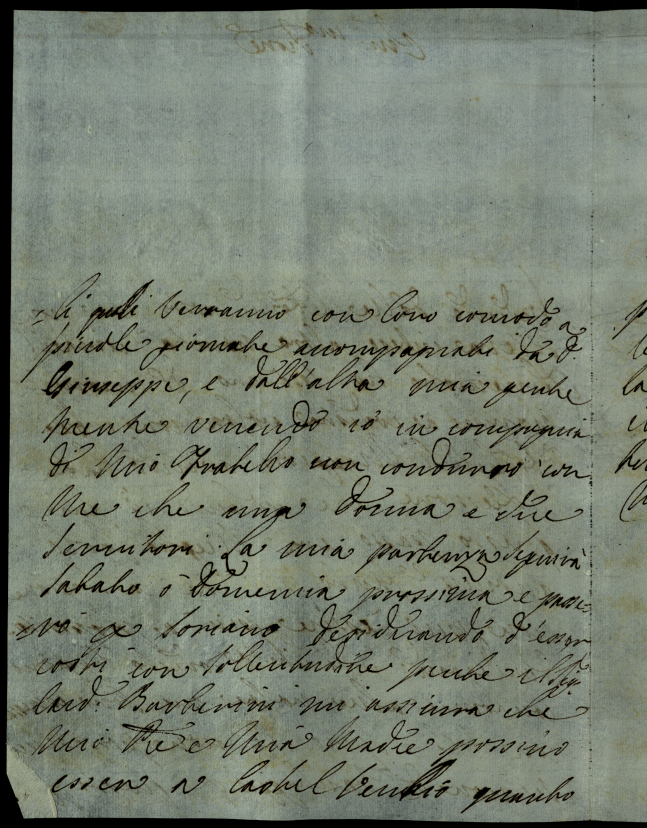 -li quali verranno con loro comodo a
piccole giornate accompagnate da D.
Giuseppe, e dall'altra mia gente
mentre venendo io in compagnia
di mio Fratello non condurrò con
me che una Donna e due
servitori. La mia partenza seguirà
sabato o domenica prossima e passe-
rò per Soriano desiderando d'esser
costì con sollecitudine perche il Sig.
Card. Barberini mi assicura che
mio Pre e mia Madre possino
essere a Castel Vecchio quanto